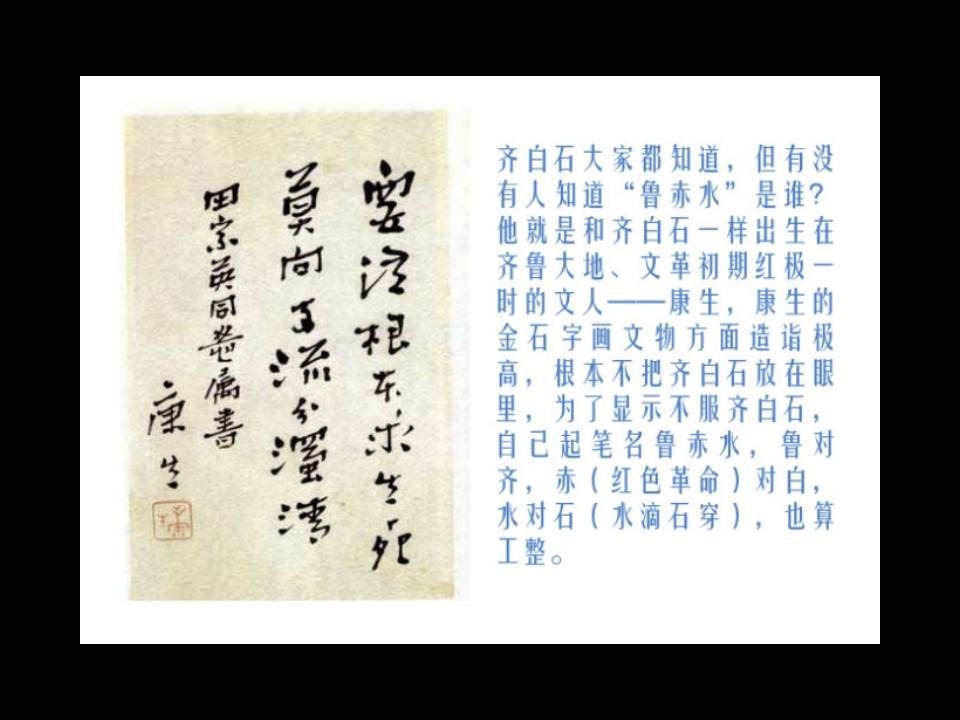 要从根本求生死
莫向支流分浊清
田家英同志属书
康生
齐白石大家都知道，但有没
有人知道“鲁赤水”是谁？
他就是和齐白石一样出生在
齐鲁大地、文革初期红极一
时的文人——康生，康生的
金石字画文物方面造诣极
高，根本不把齐白石放在眼
里，为了显示不服齐白石，
自己起笔名鲁赤水，鲁对
齐，赤（红色革命）对白，
水对石（水滴石穿），也算
工整。